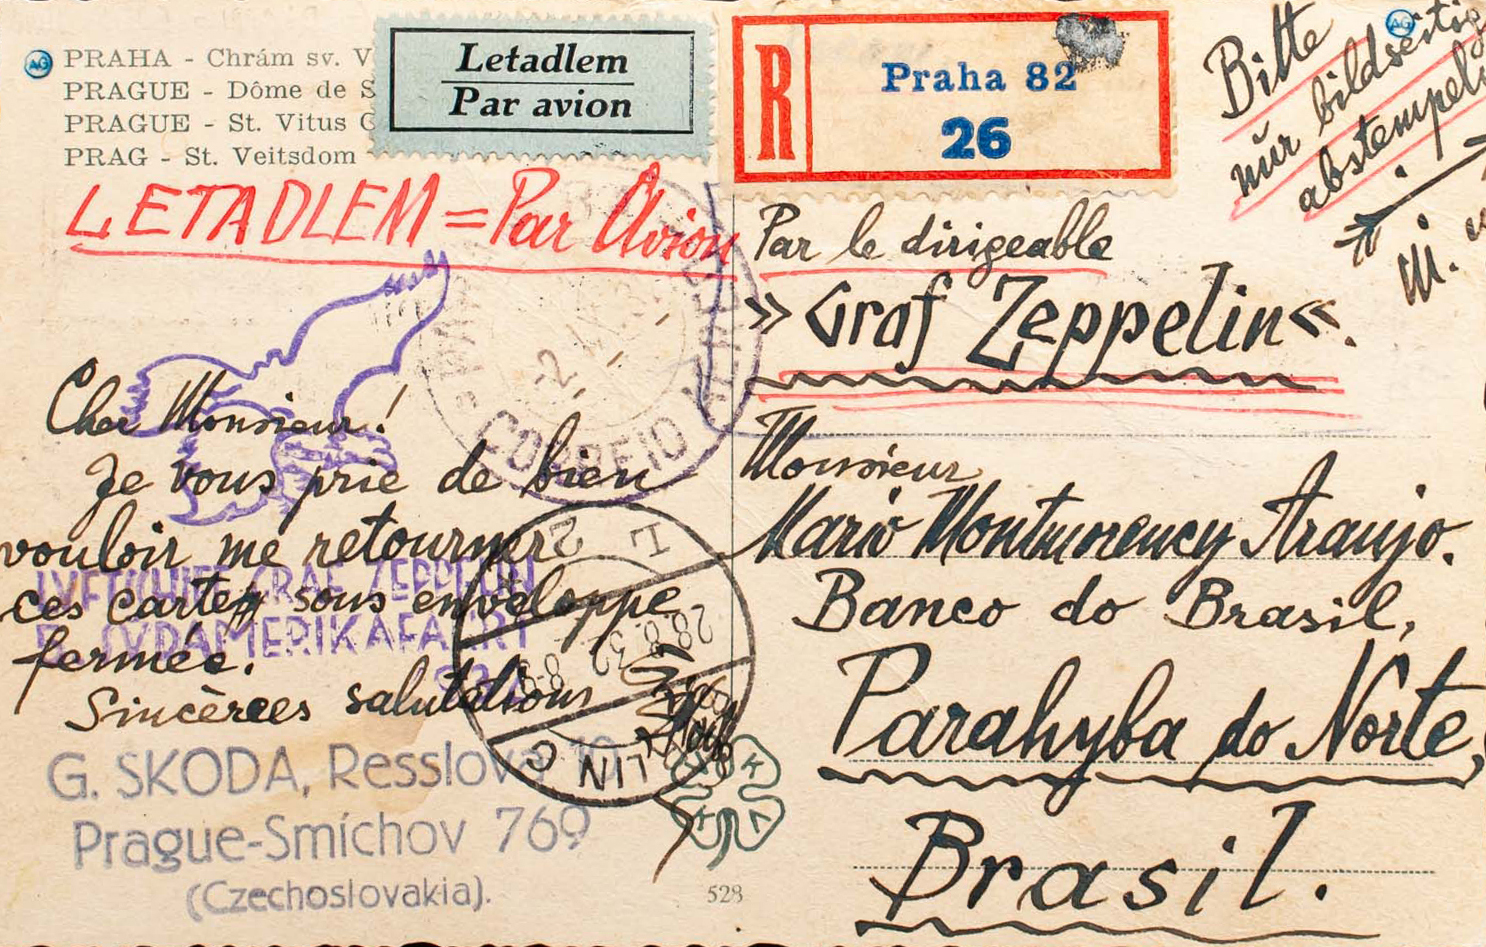 PRAHA - Chrám sv. V
PRAGUE - Dôme de S
PRAGUE - St. Vitus C
PRAG - St. Veitsdom
Letadlem
Par avion
R
Praha 82
26
Bitte
nŭr bildseitig
abstempeln
LETADLEM = Par Avion
Par le dirigeable
»Graf Zeppelin«.
Cher Monsieur!
Je vous prie de bien
vouloir me retourner
ces cartes sous enveloppe
fermée.
Sincères salutations
CORREIO
LUFTSCHIFF GRAF ZEPPELIN
SÜDAMERIKAFAHRT
28.8.32
G. SKODA, Resslova 10
Prague-Smíchov 769
(Czechoslovakia).
528
Monsieur
Mario Montmorency Araujo.
Banco do Brasil,
Parahyba do Norte,
Brasil.